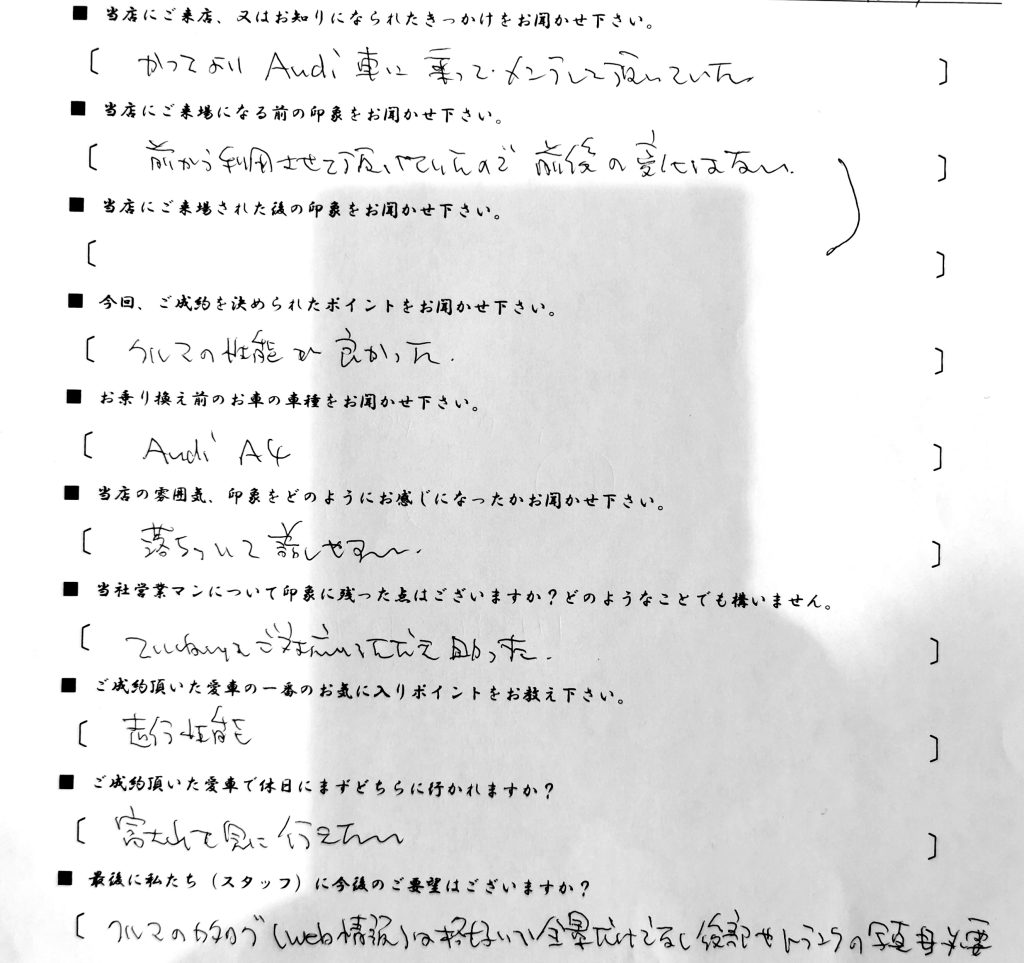 ■ 当店にご来店、又はお知りになられたきっかけをお聞かせ下さい。
〔 かってより Audi 車に 乗って、メンテして頂いていた 〕
■ 当店にご来場になる前の印象をお聞かせ下さい。
〔 前から利用させて頂いていたので 前後の変化はない。 〕
■ 当店にご来場された後の印象をお聞かせ下さい。
〔 〕
■ 今回、ご成約を決められたポイントをお聞かせ下さい。
〔 クルマの性能が 良かった. 〕
■ お乗り換え前のお車の車種をお聞かせ下さい。
〔 Audi A4 〕
■ 当店の雰囲気、印象をどのようにお感じになったかお聞かせ下さい。
〔 落ちついて 話しやすい. 〕
■ 当社営業マンについて印象に残った点はございますか？どのようなことでも構いません。
〔 ていねいな ご対応 助った. 〕
■ ご成約頂いた愛車の一番のお気に入りポイントをお教え下さい。
〔 走行性能 〕
■ ご成約頂いた愛車で休日にまずどちらに行かれますか？
〔 富士山を見に 行きたい 〕
■ 最後に私たち（スタッフ）に今後のご要望はございますか？
〔 クルマのカタログ(web情報)は格好いい全景だけでなく後部やトランクの写真も必要